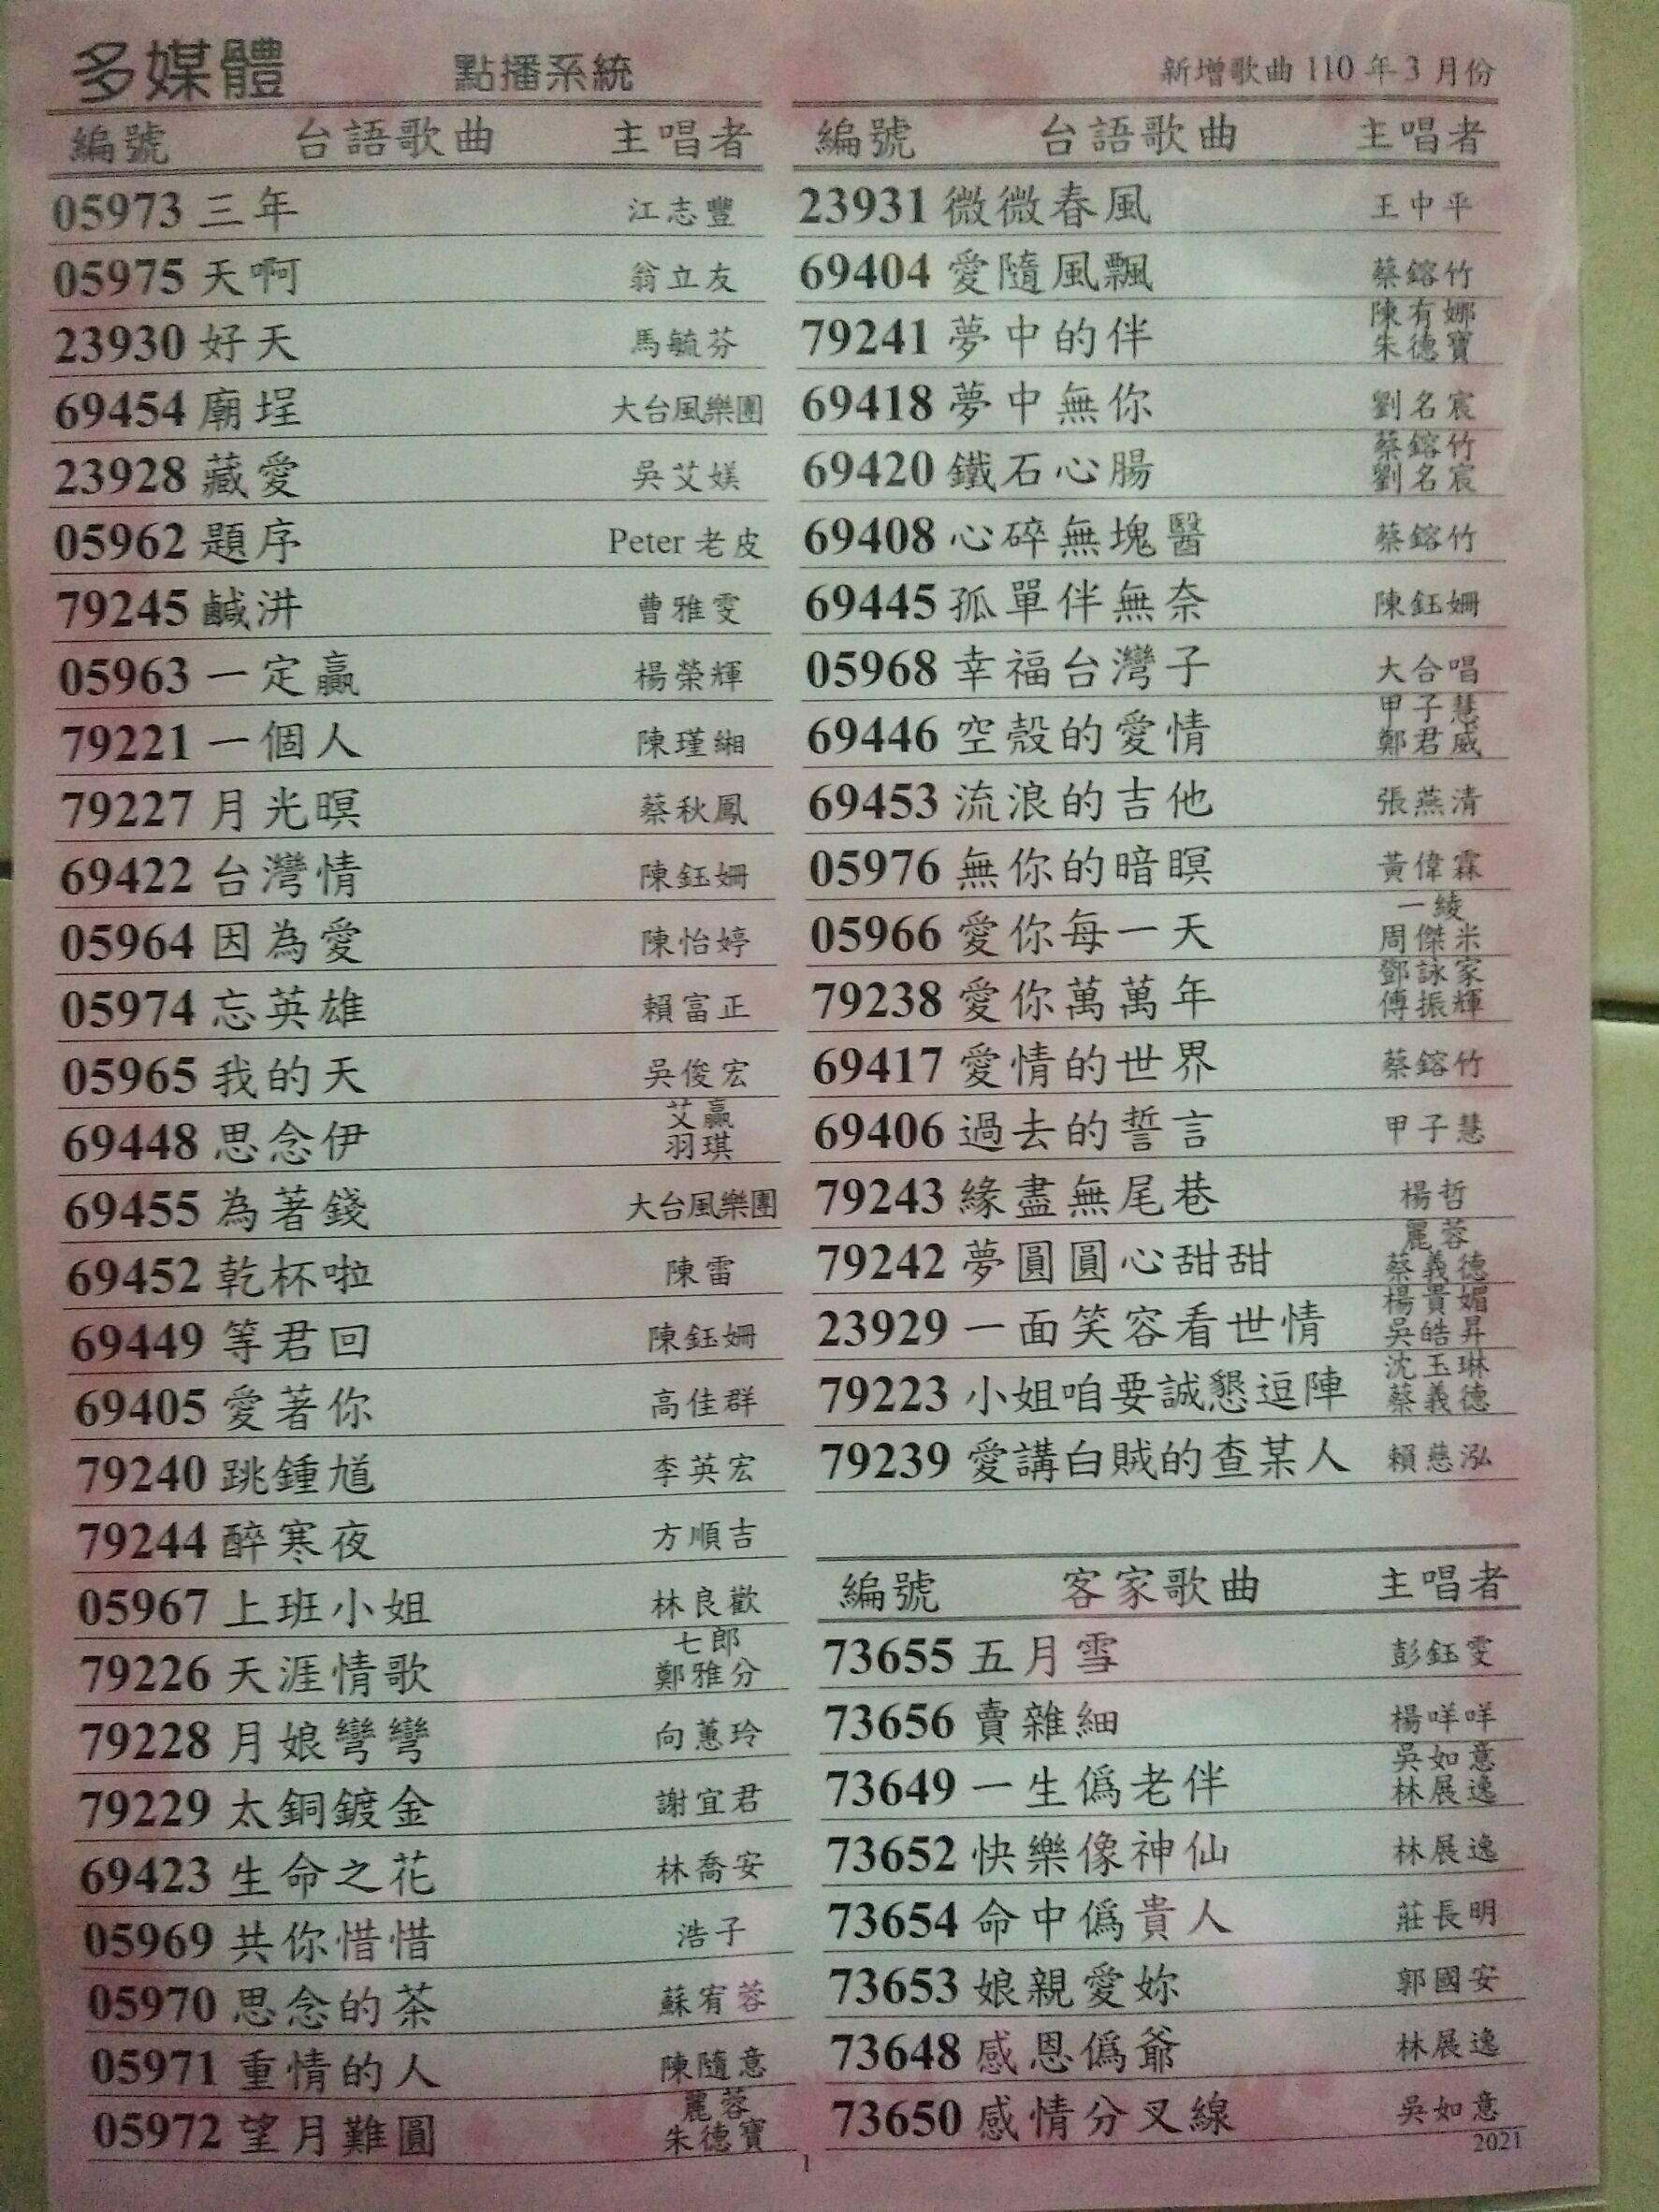 多媒體 點播系統 新增歌曲 110 年 3 月份
編號 台語歌曲 主唱者
05973 三年 江志豐
05975 天啊 翁立友
23930 好天 馬毓芬
69454 廟埕 大台風樂團
23928 藏愛 吳艾媄
05962 題序 Peter 老皮
79245 鹹汫 曹雅雯
05963 一定贏 楊榮輝
79221 一個人 陳瑾緗
79227 月光暝 蔡秋鳳
69422 台灣情 陳鈺姍
05964 因為愛 陳怡婷
05974 忘英雄 賴富正
05965 我的天 吳俊宏
69448 思念伊 艾贏 羽琪
69455 為著錢 大台風樂團
69452 乾杯啦 陳雷
69449 等君回 陳鈺姍
69405 愛著你 高佳群
79240 跳鍾馗 李英宏
79244 醉寒夜 方順吉
05967 上班小姐 林良歡
79226 天涯情歌 七郎 鄭雅分
79228 月娘彎彎 向蕙玲
79229 太銅鍍金 謝宜君
69423 生命之花 林喬安
05969 共你惜惜 浩子
05970 思念的茶 蘇宥蓉
05971 重情的人 陳隨意
05972 望月難圓 麗蓉 朱德寶
編號 台語歌曲 主唱者
23931 微微春風 王中平
69404 愛隨風飄 蔡鎔竹
79241 夢中的伴 陳有娜 朱德寶
69418 夢中無你 劉名宸
69420 鐵石心腸 蔡鎔竹 劉名宸
69408 心碎無塊醫 蔡鎔竹
69445 孤單伴無奈 陳鈺姍
05968 幸福台灣子 大合唱
69446 空殼的愛情 甲子慧 鄭君威
69453 流浪的吉他 張燕清
05976 無你的暗暝 黃偉霖
05966 愛你每一天 一綾 周傑米
79238 愛你萬萬年 鄧詠家 傅振輝
69417 愛情的世界 蔡鎔竹
69406 過去的誓言 甲子慧
79243 緣盡無尾巷 楊哲
79242 夢圓圓心甜甜 麗蓉 蔡義德
23929 一面笑容看世情 楊貴媚 吳皓昇
79223 小姐咱要誠懇逗陣 沈玉琳 蔡義德
79239 愛講白賊的查某人 賴慈泓
編號 客家歌曲 主唱者
73655 五月雪 彭鈺雯
73656 賣雜細 楊咩咩
73649 一生僞老伴 吳如意 林展逸
73652 快樂像神仙 林展逸
73654 命中僞貴人 莊長明
73653 娘親愛妳 郭國安
73648 感恩僞爺 林展逸
73650 感情分叉線 吳如意
2021
1